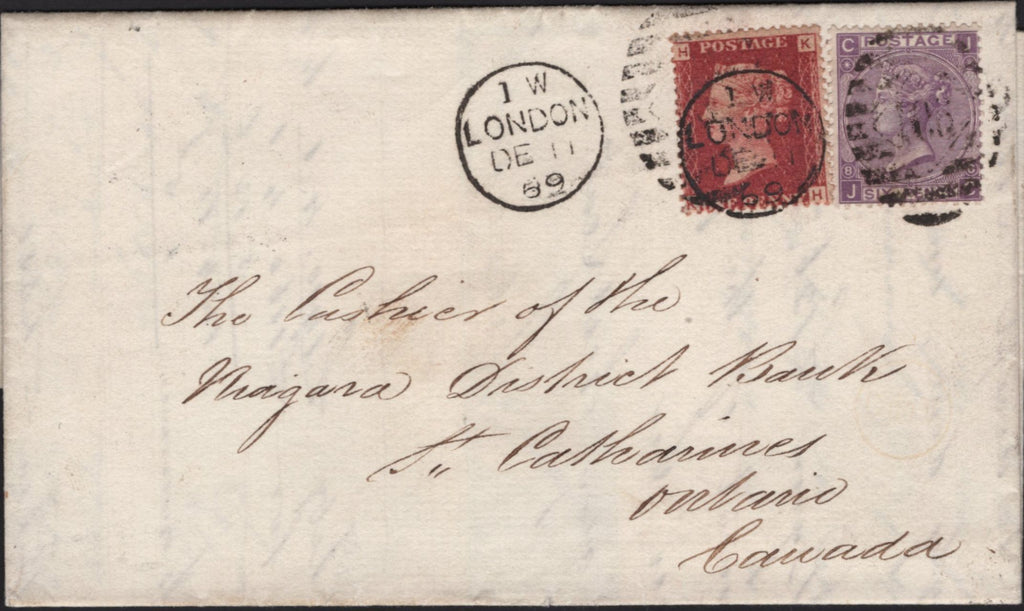 1 W
LONDON
DE 11
69
H K
POSTAGE
1 W
LONDON
DE 11
69
H
C POSTAGE I
8
J SIXPENCE C
The Cashier of the
Niagara District Bank
St,, Catharines
Ontario
Canada